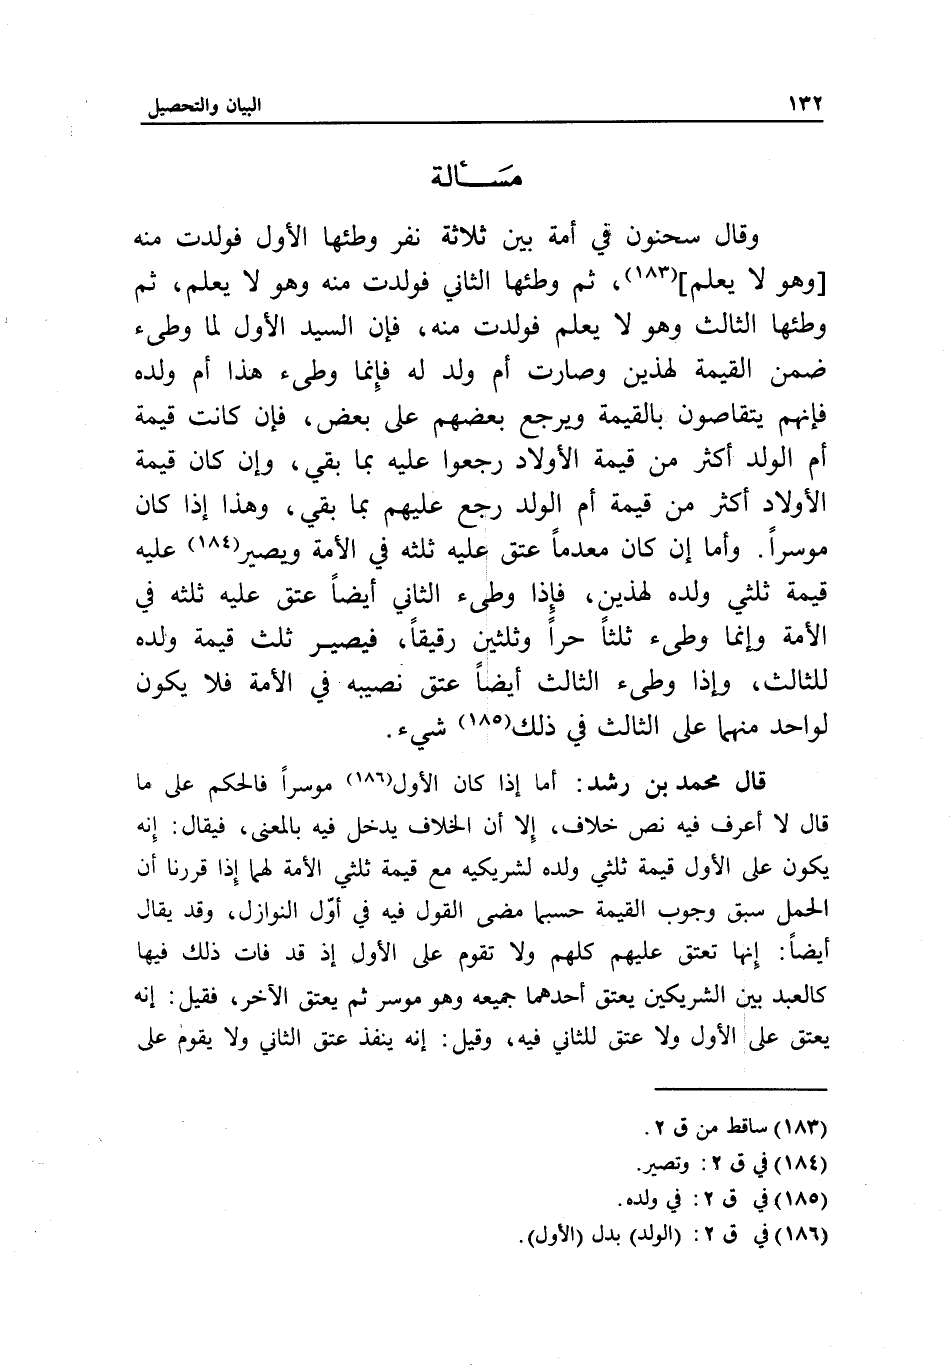 ١٣٢ البيان والتحصيل
مسألة
وقال سحنون في أمة بين ثلاثة نفر وطئها الأول فولدت منه
[وهو لا يعلم](١٨٣)، ثم وطئها الثاني فولدت منه وهو لا يعلم، ثم
وطئها الثالث وهو لا يعلم فولدت منه، فإن السيد الأول لما وطىء
ضمن القيمة لهذين وصارت أم ولد له فإنما وطىء هذا أم ولده
فإنهم يتقاصون بالقيمة ويرجع بعضهم على بعض، فإن كانت قيمة
أم الولد أكثر من قيمة الأولاد رجعوا عليه بما بقي، وإن كان قيمة
الأولاد أكثر من قيمة أم الولد رجع عليهم بما بقي، وهذا إذا كان
موسراً. وأما إن كان معدماً عتق عليه ثلثه في الأمة ويصير(١٨٤) عليه
قيمة ثلثي ولده لهذين، فإذا وطىء الثاني أيضاً عتق عليه ثلثه في
الأمة وإنما وطىء ثلثاً حراً وثلثين رقيقاً، فيصير ثلث قيمة ولده
للثالث، وإذا وطىء الثالث أيضاً عتق نصيبه في الأمة فلا يكون
لواحد منهما على الثالث في ذلك(١٨٥) شيء.
قال محمد بن رشد: أما إذا كان الأول(١٨٦) موسراً فالحكم على ما
قال لا أعرف فيه نص خلاف، إلا أن الخلاف يدخل فيه بالمعنى، فيقال: إنه
يكون على الأول قيمة ثلثي ولده لشريكيه مع قيمة ثلثي الأمة لهما إذا قررنا أن
الحمل سبق وجوب القيمة حسبما مضى القول فيه في أوّل النوازل، وقد يقال
أيضاً: إنها تعتق عليهم كلهم ولا تقوم على الأول إذ قد فات ذلك فيها
كالعبد بين الشريكين يعتق أحدهما جميعه وهو موسر ثم يعتق الآخر، فقيل: إنه
يعتق على الأول ولا عتق للثاني فيه، وقيل: إنه ينفذ عتق الثاني ولا يقوم على
(١٨٣) ساقط من ق ٢.
(١٨٤) في ق ٢: وتصير.
(١٨٥) في ق ٢: في ولده.
(١٨٦) في ق ٢: (الولد) بدل (الأول).